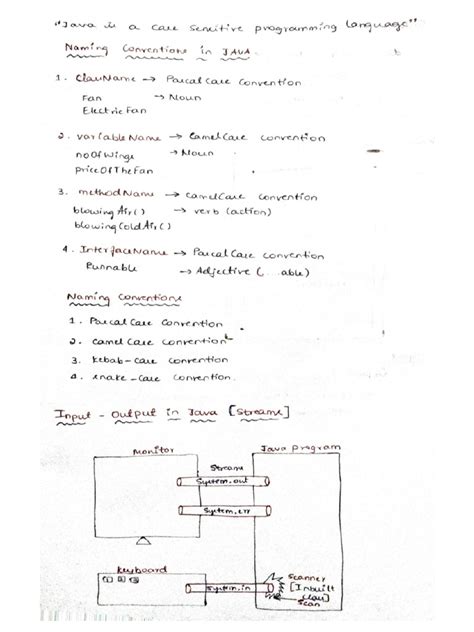 "Java is a case sensitive programming language"
Naming Conventions in JAVA.
1. ClassName → PascalCase convention
Fan → Noun
ElectricFan
2. variableName → CamelCase convention
noOfWings → Noun
priceOfTheFan
3. methodName → camelCase convention
blowingAir() → verb (action)
blowingColdAir()
4. InterfaceName → PascalCase convention
Runnable → Adjective (...able)
Naming Conventions
1. PascalCase Convention
2. camelCase convention
3. kebab-case convention
4. snake-case convention.
Input - Output in Java [Streams]
monitor
Java program
Streams
System.out
System.err
Keyboard
System.in
Scanner
[Inbuilt
class]
scan